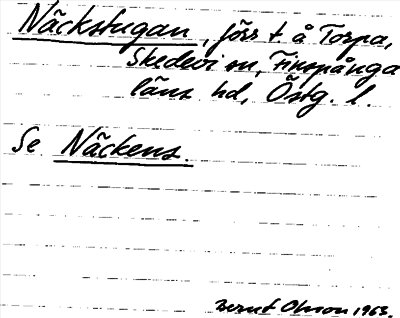 Näckstugan, förr t. å Torpa,
Skedevi sn, Finspånga
läns hd, Östg. l.
Se Näckens.
Bernt Olsson 1963.